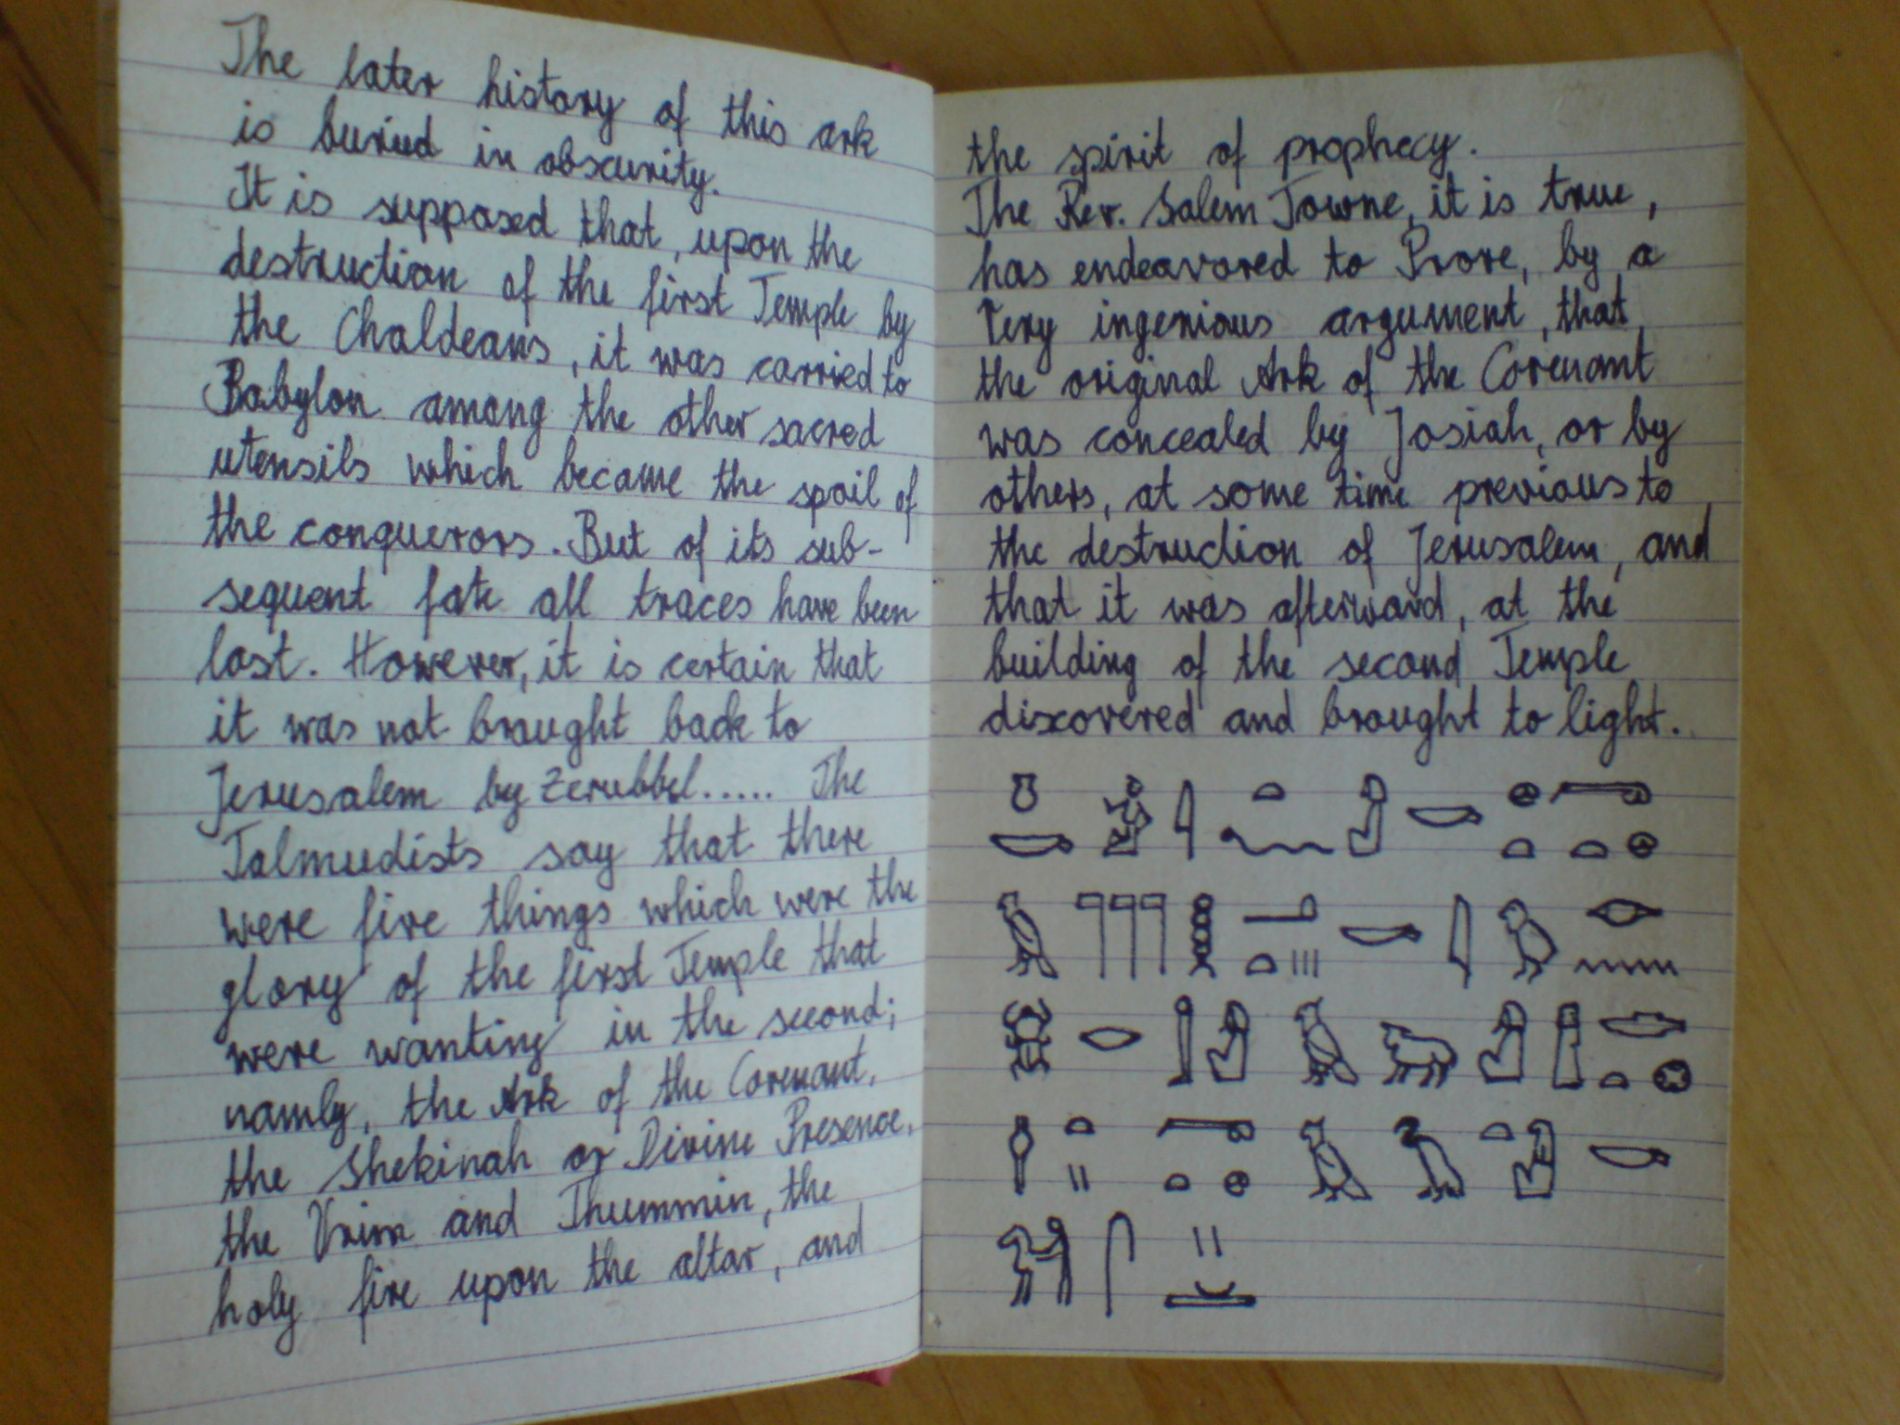 The later history of this ark
is buried in obscurity.
It is supposed that, upon the
destruction of the first Temple by
the Chaldeans, it was carried to
Babylon among the other sacred
utensils which became the spoil of
the conquerors. But of its sub-
sequent fate all traces have been
lost. However, it is certain that
it was not brought back to
Jerusalem by Zerubbel..... The
Talmudists say that there
were five things which were the
glory of the first Temple that
were wanting in the second;
namly, the Ark of the Covenant,
the Shekinah or Divine Presence,
the Urim and Thummin, the
holy fire upon the altar, and
the spirit of prophecy.
The Rev. Salem Towne, it is true,
has endeavored to Prove, by a
Very ingenious argument, that,
the original Ark of the Covenant
was concealed by Josiah, or by
others, at some time previous to
the destruction of Jerusalem, and
that it was afterward, at the
building of the second Temple
discovered and brought to light.